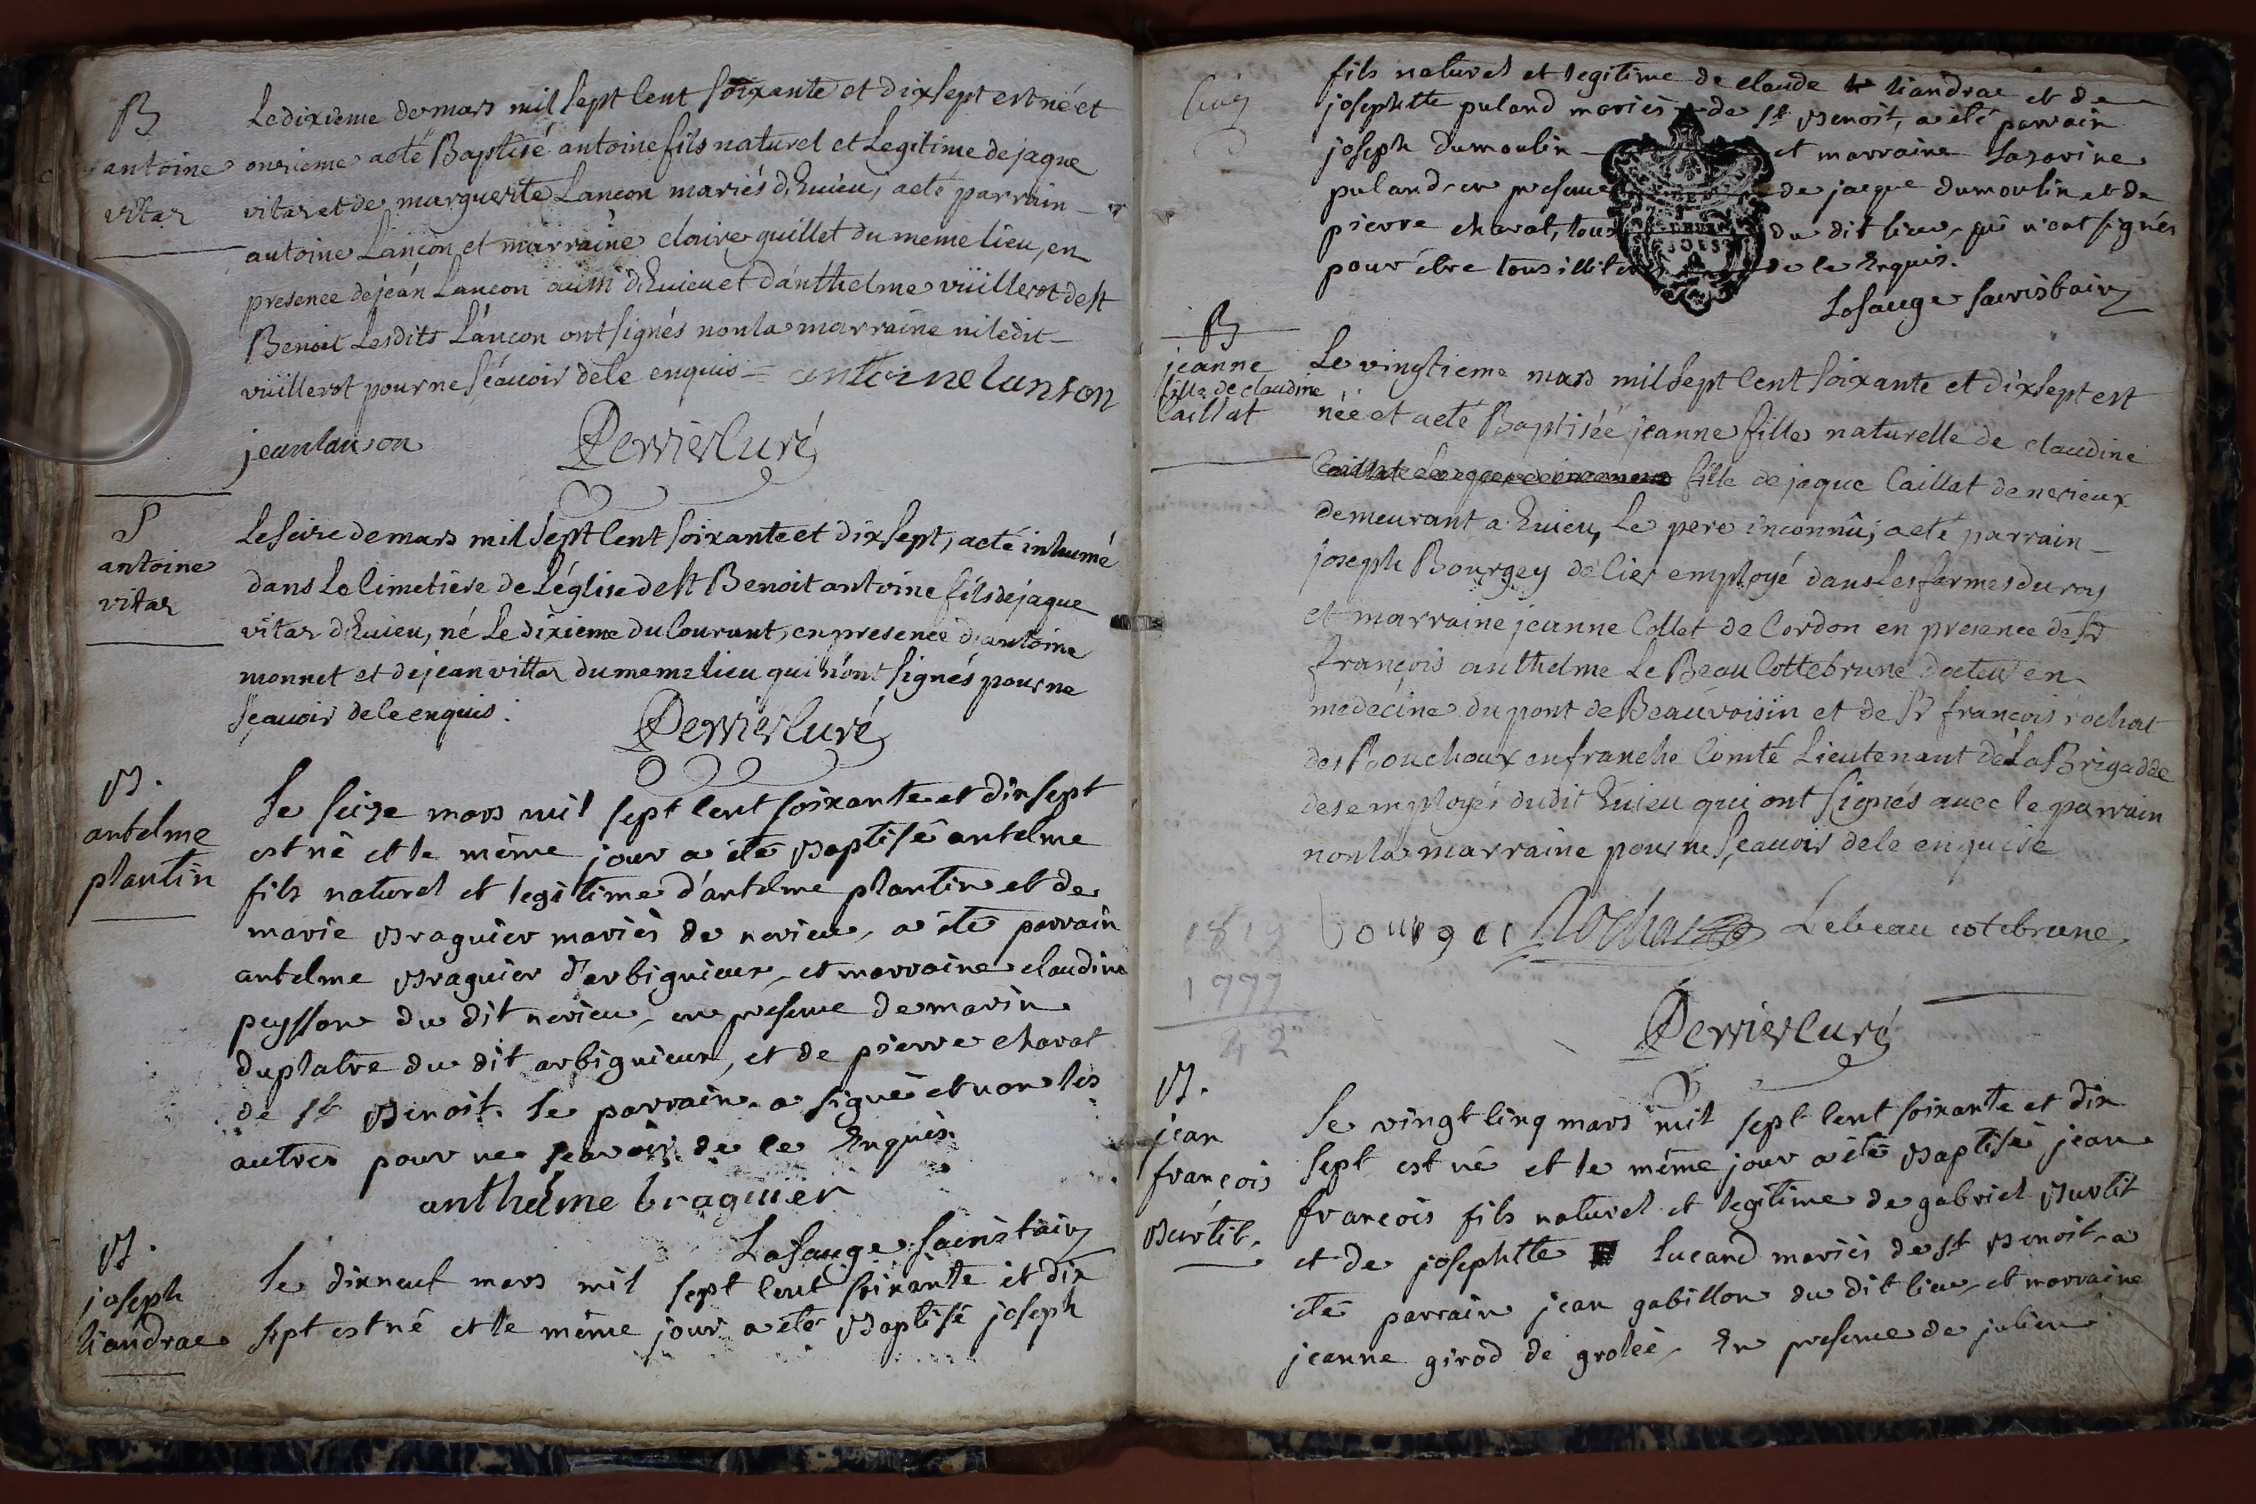 B
antoine
vitar
Le dixieme de mars mil sept Cent soixante et dixsept est né et
onzieme a eté Baptisé antoine fils naturel et Legitime de jaque
vitar et de marguerite Lancon mariés d'Evieu, a eté parrain
antoine Lancon et marraine claire quillet du meme lieu, en
presence de jean Lancon aussi d'Evieu et d'anthelme vüillerot de st
Benoit Lesdits Lancon ont signés non la marraine ni ledit
vüillerot pour ne sçavoir de le enquis = antoine lanson
jean lanson
Perrier Curé
S
antoine
vitar
Le seize de mars mil sept Cent soixante et dixsept, a eté inhumé
dans Le Cimetiere de L'église de st Benoit antoine fils de jaque
vitar d'Evieu, né Le dixieme du Courant, en presence d'antoine
monnet et de jean vittar du meme lieu qui n'ont signés pour ne
sçavoir de le enquis.
Perrier Curé
B.
antelme
plantin
Le seize mars mil sept Cent soixante et dix sept
est né et le même jour a été Baptisé antelme
fils naturel et legitime d'antelme plantin et de
marie Braguier mariés de nerieu, a été parrain
antelme Braguier d'arbignieur, et marraine claudine
peysson du dit nerieu, en presence de marin
duplatre du dit arbignieur, et de pierre charat
de st Benoit. le parrain a signé et non les
autres pour ne sçavoir de le Enquis.
anthelme braguier
Lasauge
B.
joseph
liandrae
Le dixneuf mars mil sept Cent soixante et dix
sept est né et le même jour a été Baptisé joseph
fils naturel et legitime de claude liandrae et de
josephtte puland mariés de st Benoit, a été parrain
joseph dumoulin et marraine Lazarine
puland, en presence de jacque dumoulin et de
pierre charat, tous du dit lieu, qui n'ont signés
pour être tous illiterés de le Enquis.
Lasauge
B
jeanne
fille de claudine
Caillat
Le vingtieme mars mil sept Cent soixante et dixsept est
née et a eté Baptisée jeanne fille naturelle de claudine
fille de jaque Caillat de nerieux
demeurant a Evieu, Le pere inconnû; a eté parrain
joseph Bourgey de lier employé dans Les fermes du roy
et marraine jeanne Collet de Cordon en presence de sr
françois anthelme Le Beau Cottebrune docteur en
médecine du pont de Beauvoisin et de sr françois rochat
des Bouchoux en franche Comté Lieutenant de La Brigadde
des employés dudit Evieu qui ont signés avec le parrain
non la marraine pour ne sçavoir de le enquise
1819
1777
42
bourgei Rochat Lebeau cotebrune
Perrier Curé
B.
jean
françois
Burtit.
Le vingt Cinq mars mil sept Cent soixante et dix
sept est né et le même jour a été Baptisé jean
françois fils naturel et legitime de gabriel Burtit
et de josephtte Lucand mariés de st Benoit, a
été parrain jean gabillon du dit lieu, et marraine
jeanne girod de grolée, En presence de julien